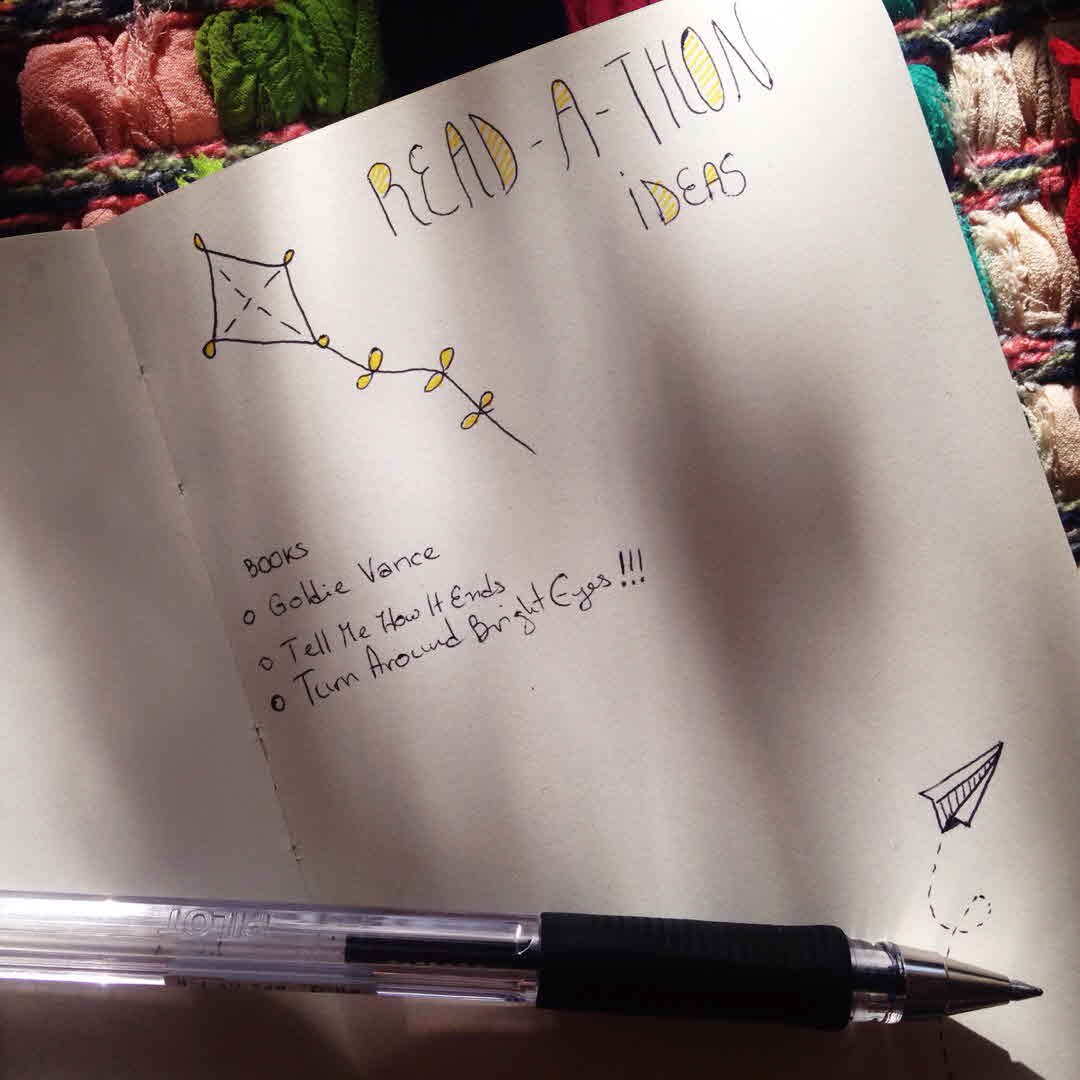 READ-A-THON
iDEAS
BOOKS
o Goldie Vance
o Tell Me How It Ends
o Turn Around Bright Eyes!!!
PILOT